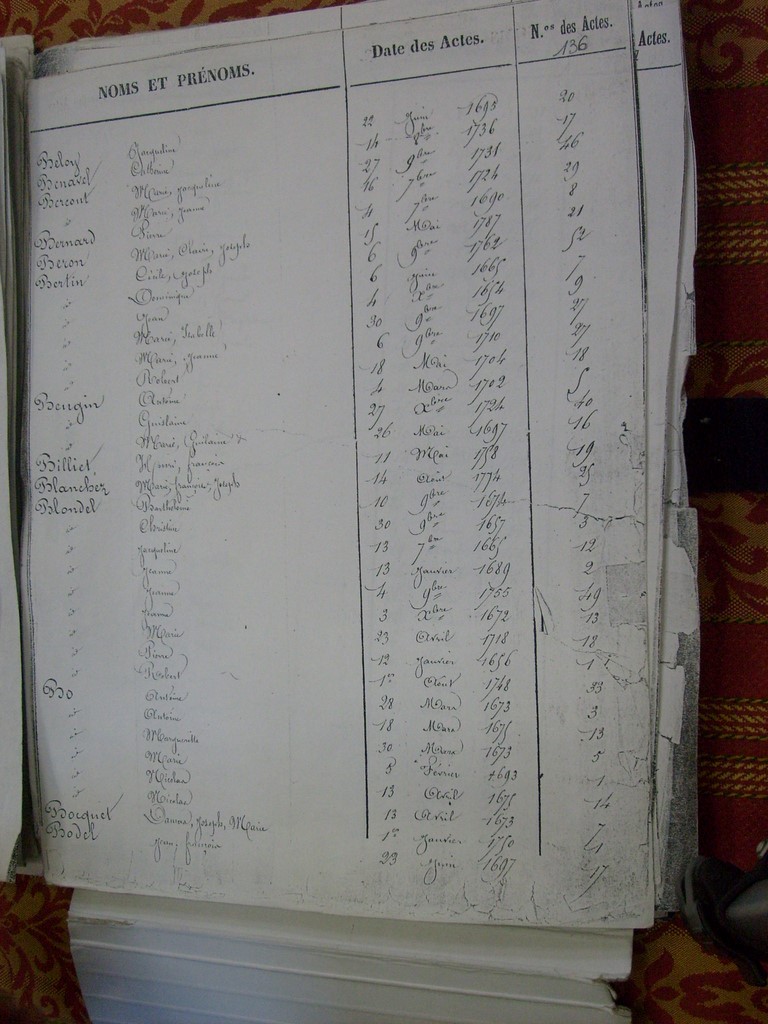 NOMS ET PRÉNOMS. Date des Actes. N.os des Actes.
136
Actes.
Beloy Jacqueline 22 Juin 1693 20
Benavel Catherine 14 8bre 1736 17
Bercout Marie, Jacqueline 27 9bre 1731 46
d° Marie, Jeanne 16 7bre 1724 29
Bernard Pierre 4 7bre 1690 8
Beron Marie, Claire, Joseph 15 Mai 1787 21
Bertin Cécile, Joseph 6 9bre 1762 52
d° Dominique 6 Juin 1665 7
d° Jean 4 Xbre 1654 9
d° Marie, Isabelle 30 9bre 1697 27
d° Marie, Jeanne 6 9bre 1710 27
d° Robert 18 Mai 1704 18
Beugin Antoine 4 Mars 1702 5
d° Guislaine 27 Xbre 1724 40
d° Marie, Guilaine 26 Mai 1697 16
Billiet Henri, françois 11 Mai 1758 19
Blanchez Marie, françoise, Joseph 14 Août 1774 25
Blondel Barthelemi 10 9bre 1674 7
d° Christine 30 9bre 1657 3
d° Jacqueline 13 7bre 1665 12
d° Jeanne 13 Janvier 1689 2
d° Jeanne 4 9bre 1755 49
d° Jeanne 3 Xbre 1672 13
d° Marie 23 Avril 1718 18
d° Pierre 12 Janvier 1656 1
d° Robert 1er Août 1748 33
Bo Antoine 28 Mars 1673 3
d° Antoine 18 Mars 1675 13
d° Marguerite 30 Mars 1673 5
d° Marie 5 Février 1693 1
d° Nicolas 13 Avril 1675 14
d° Nicolas 13 Avril 1673 7
Bocquet Joseph, Marie 1er Janvier 1750 1
Bodel Jean, françois 23 Juin 1697 17